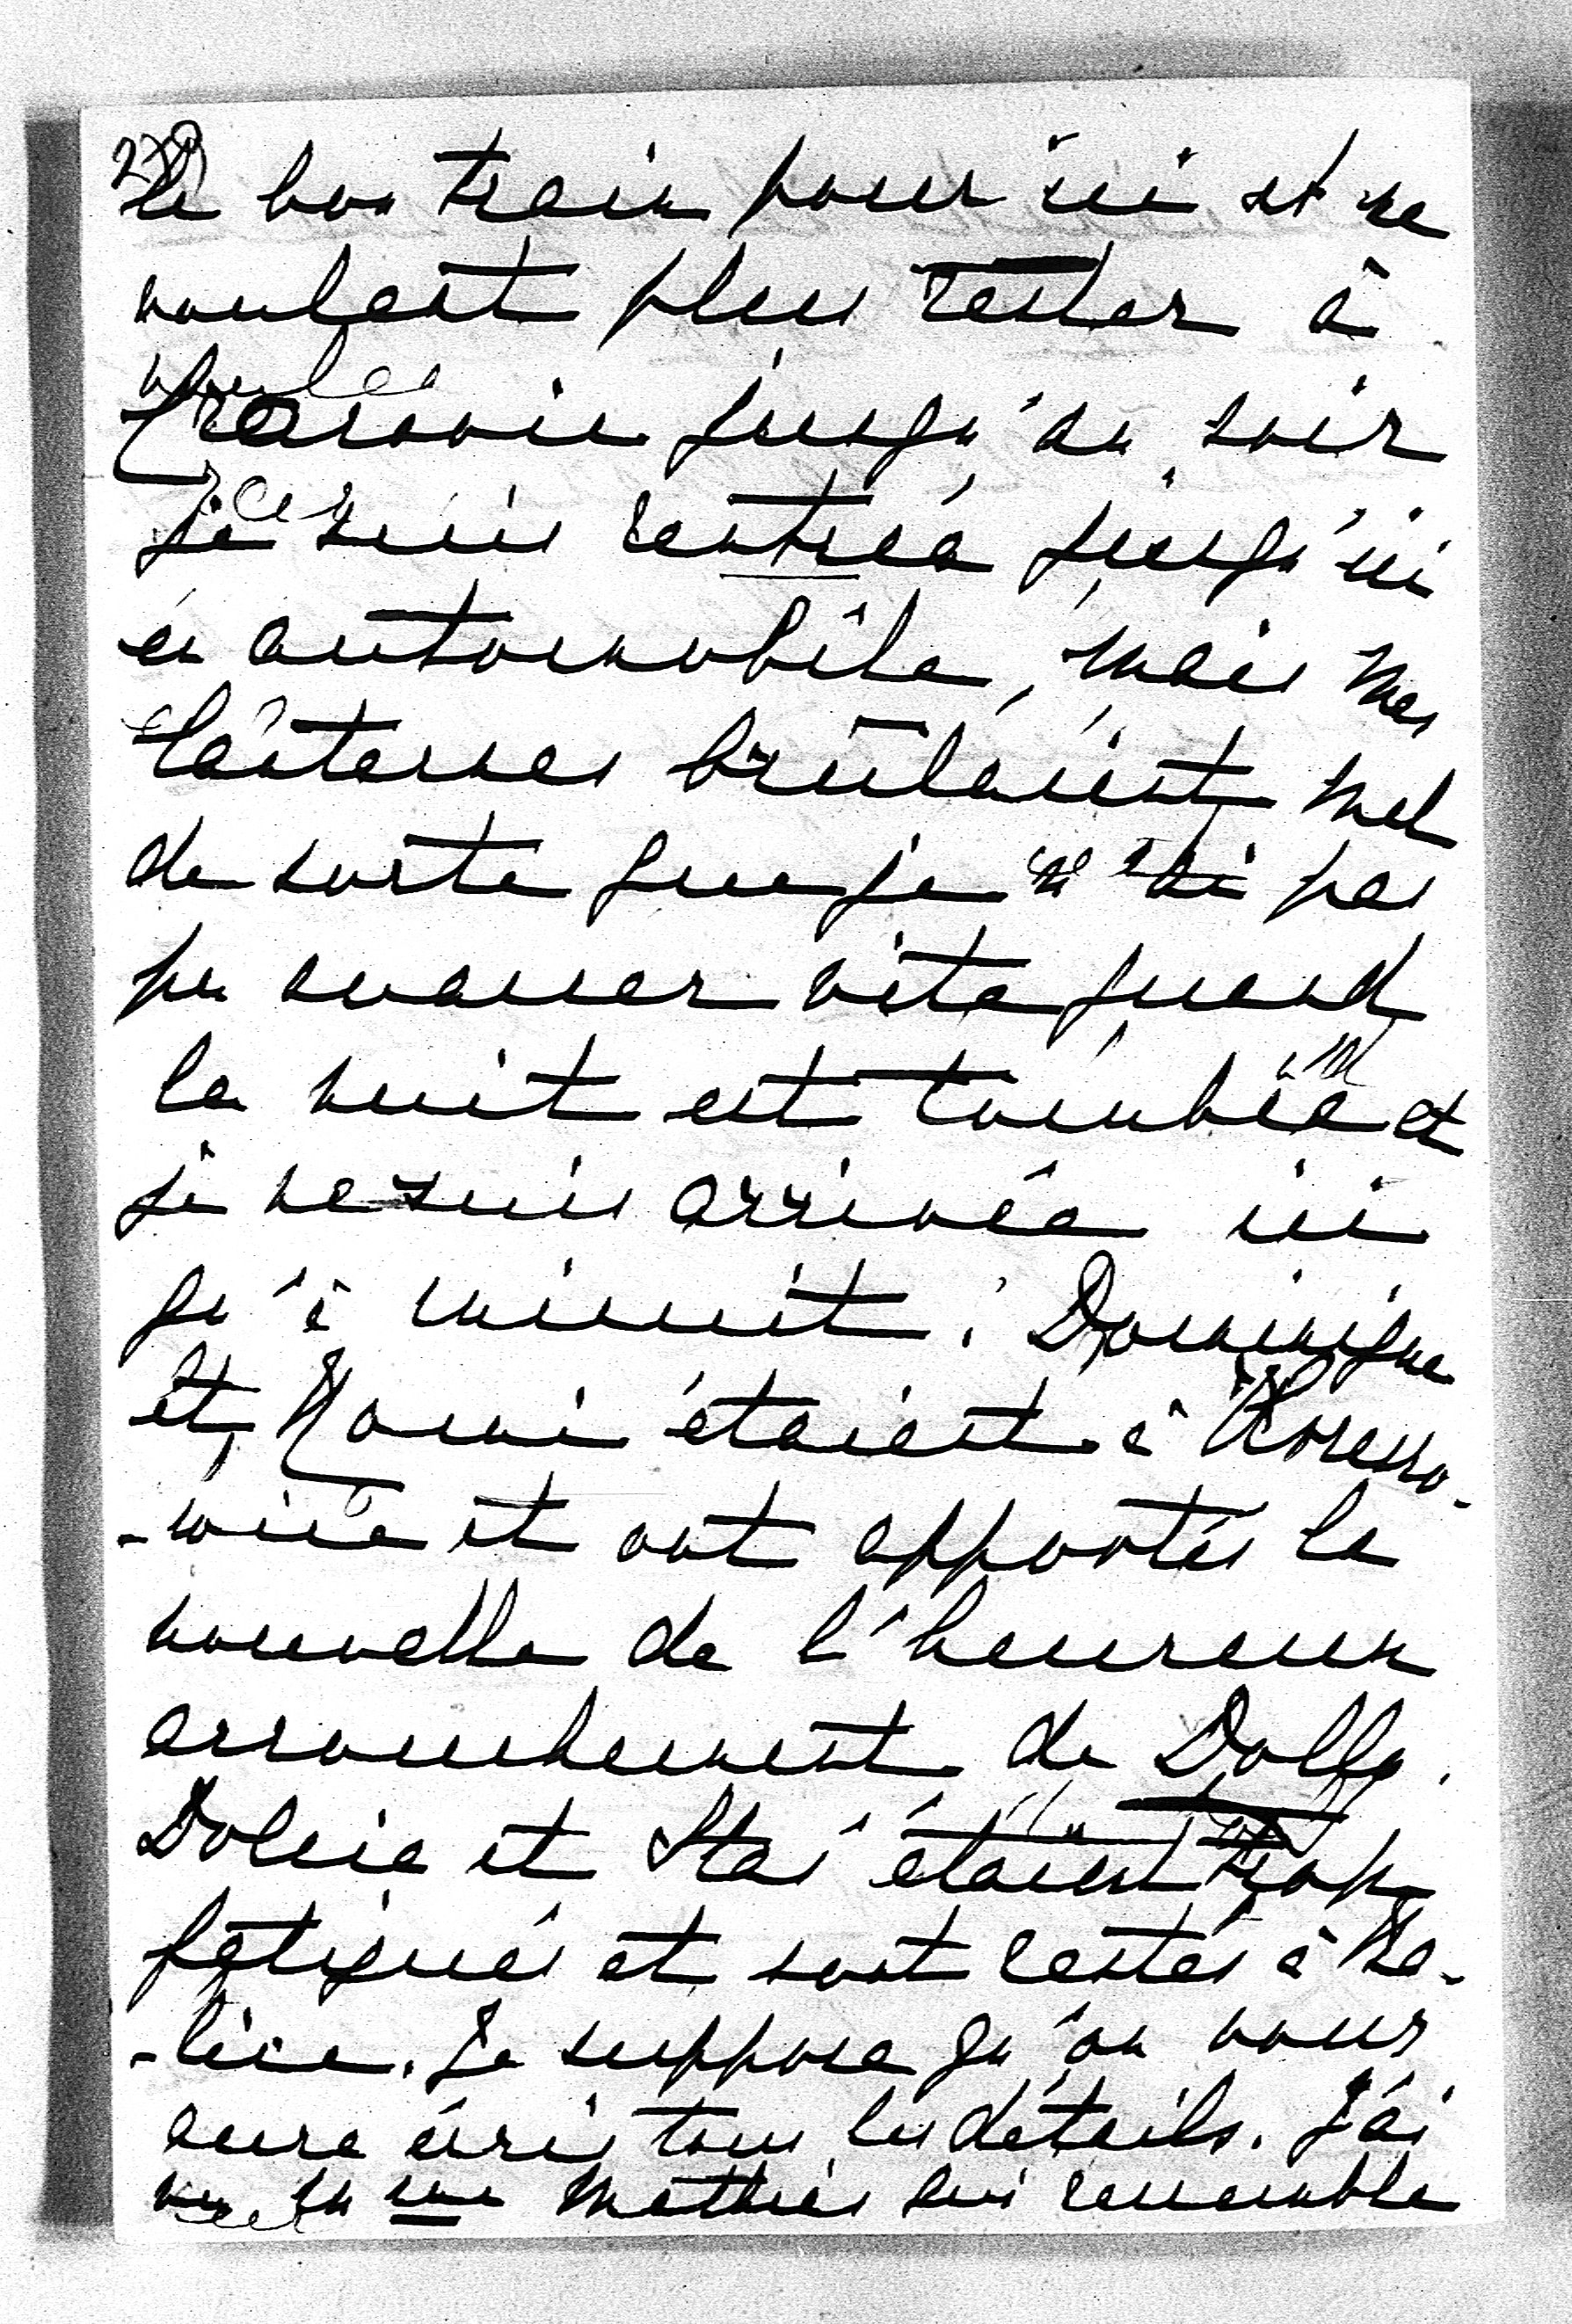 le bon train pour ici et ne
voulant plus rester à
Cracovie jusqu'au soir
je suis rentrée jusqu'ici
en automobile, mais mes
lanternes brûlaient mal
de sorte que je n'ai pas
pu avancer vite quand
la nuit est tombée et
je ne suis arrivée ici
qu'à minuit. Dominique
et étaient à
-wice et ont apportés la
nouvelle de l'heureux
accouchement de Dolly.
et Staś étaient trop
fatigués et sont restés à Ba-
-lice. Je suppose qu'on vous
aura écris tous les détails. J'ai
vu qui ressemble